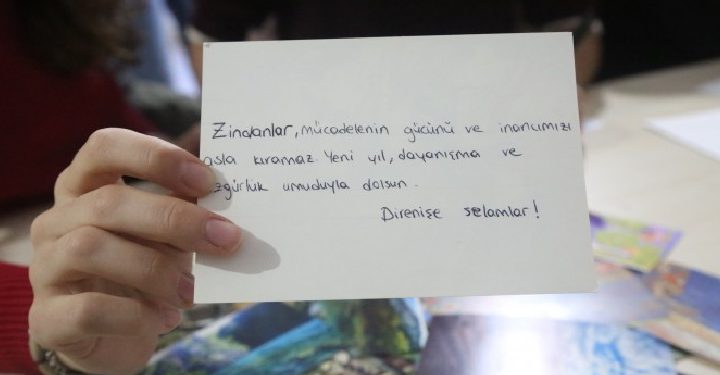 Zindanlar, mücadelenin gücünü ve inancımızı
asla kıramaz. Yeni yıl, dayanışma ve
zgürlük umuduyla dolsun.
Direnişe selamlar!